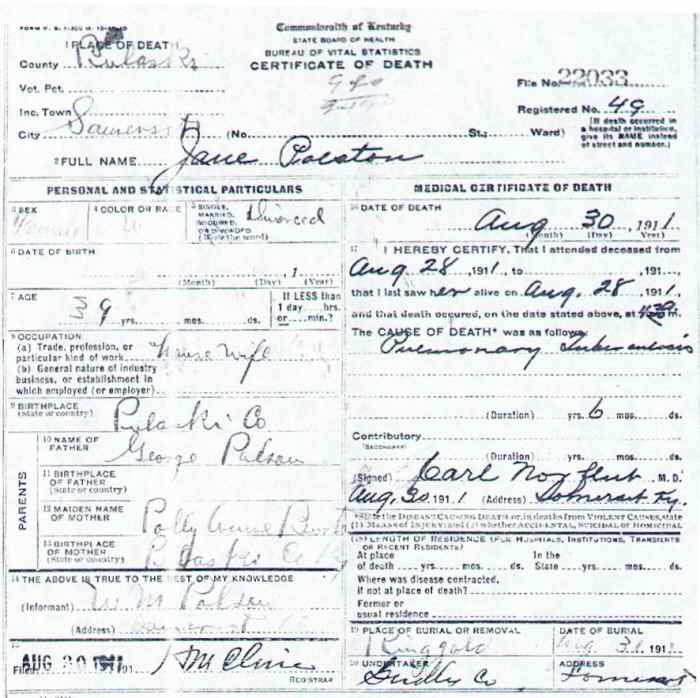 Commonwealth of Kentucky
STATE BOARD OF HEALTH
BUREAU OF VITAL STATISTICS
CERTIFICATE OF DEATH
1 PLACE OF DEATH
County Pulaski
Vot. Pct.
Inc. Town
City Somerset (No. St.; Ward)
File No. 22033
Registered No. 49
[If death occurred in a hospital or institution, give its NAME instead of street and number.]
2 FULL NAME Jane
PERSONAL AND STATISTICAL PARTICULARS
3 SEX
4 COLOR OR RACE
5 SINGLE, MARRIED, WIDOWED, OR DIVORCED (Write the word) Divorced
6 DATE OF BIRTH
(Month) (Day) , 1 (Year)
7 AGE
39 yrs. mos. ds.
If LESS than 1 day hrs. or min.?
8 OCCUPATION
(a) Trade, profession, or particular kind of work House wife
(b) General nature of industry business, or establishment in which employed (or employer)
9 BIRTHPLACE (State or country)
Pulaski Co
PARENTS
10 NAME OF FATHER George
11 BIRTHPLACE OF FATHER (State or country)
12 MAIDEN NAME OF MOTHER Polly
13 BIRTHPLACE OF MOTHER (State or country) Pulaski Co
14 THE ABOVE IS TRUE TO THE BEST OF MY KNOWLEDGE
(Informant) W M
(Address) Somerset
15
Filed AUG 30 1911 191
REGISTRAR
MEDICAL CERTIFICATE OF DEATH
16 DATE OF DEATH
Aug 30, 1911
(Month) (Day) (Year)
17 I HEREBY CERTIFY, That I attended deceased from
Aug 28, 1911, to , 191
that I last saw her alive on Aug 28, 1911,
and that death occured, on the date stated above, at m.
The CAUSE OF DEATH* was as follows:
Pulmonary Tuberculosis
(Duration) yrs. 6 mos. ds.
Contributory
(Secondary)
(Duration) yrs. mos. ds.
(Signed) Carl Norfleet M.D.
Aug. 30, 1911 (Address) Somerset Ky.
*State the DISEASE CAUSING DEATH or, in deaths from VIOLENT CAUSES, state
(1) MEANS OF INJURY and (2) whether ACCIDENTAL, SUICIDAL or HOMICIDAL
(18) LENGTH OF RESIDENCE (FOR HOSPITALS, INSTITUTIONS, TRANSIENTS OR RECENT RESIDENTS)
At place of death yrs. mos. ds. In the State yrs. mos. ds.
Where was disease contracted, if not at place of death?
Former or usual residence
19 PLACE OF BURIAL OR REMOVAL
Ringgold
DATE OF BURIAL
Aug 31, 191
20 UNDERTAKER
Co
ADDRESS
Somerset